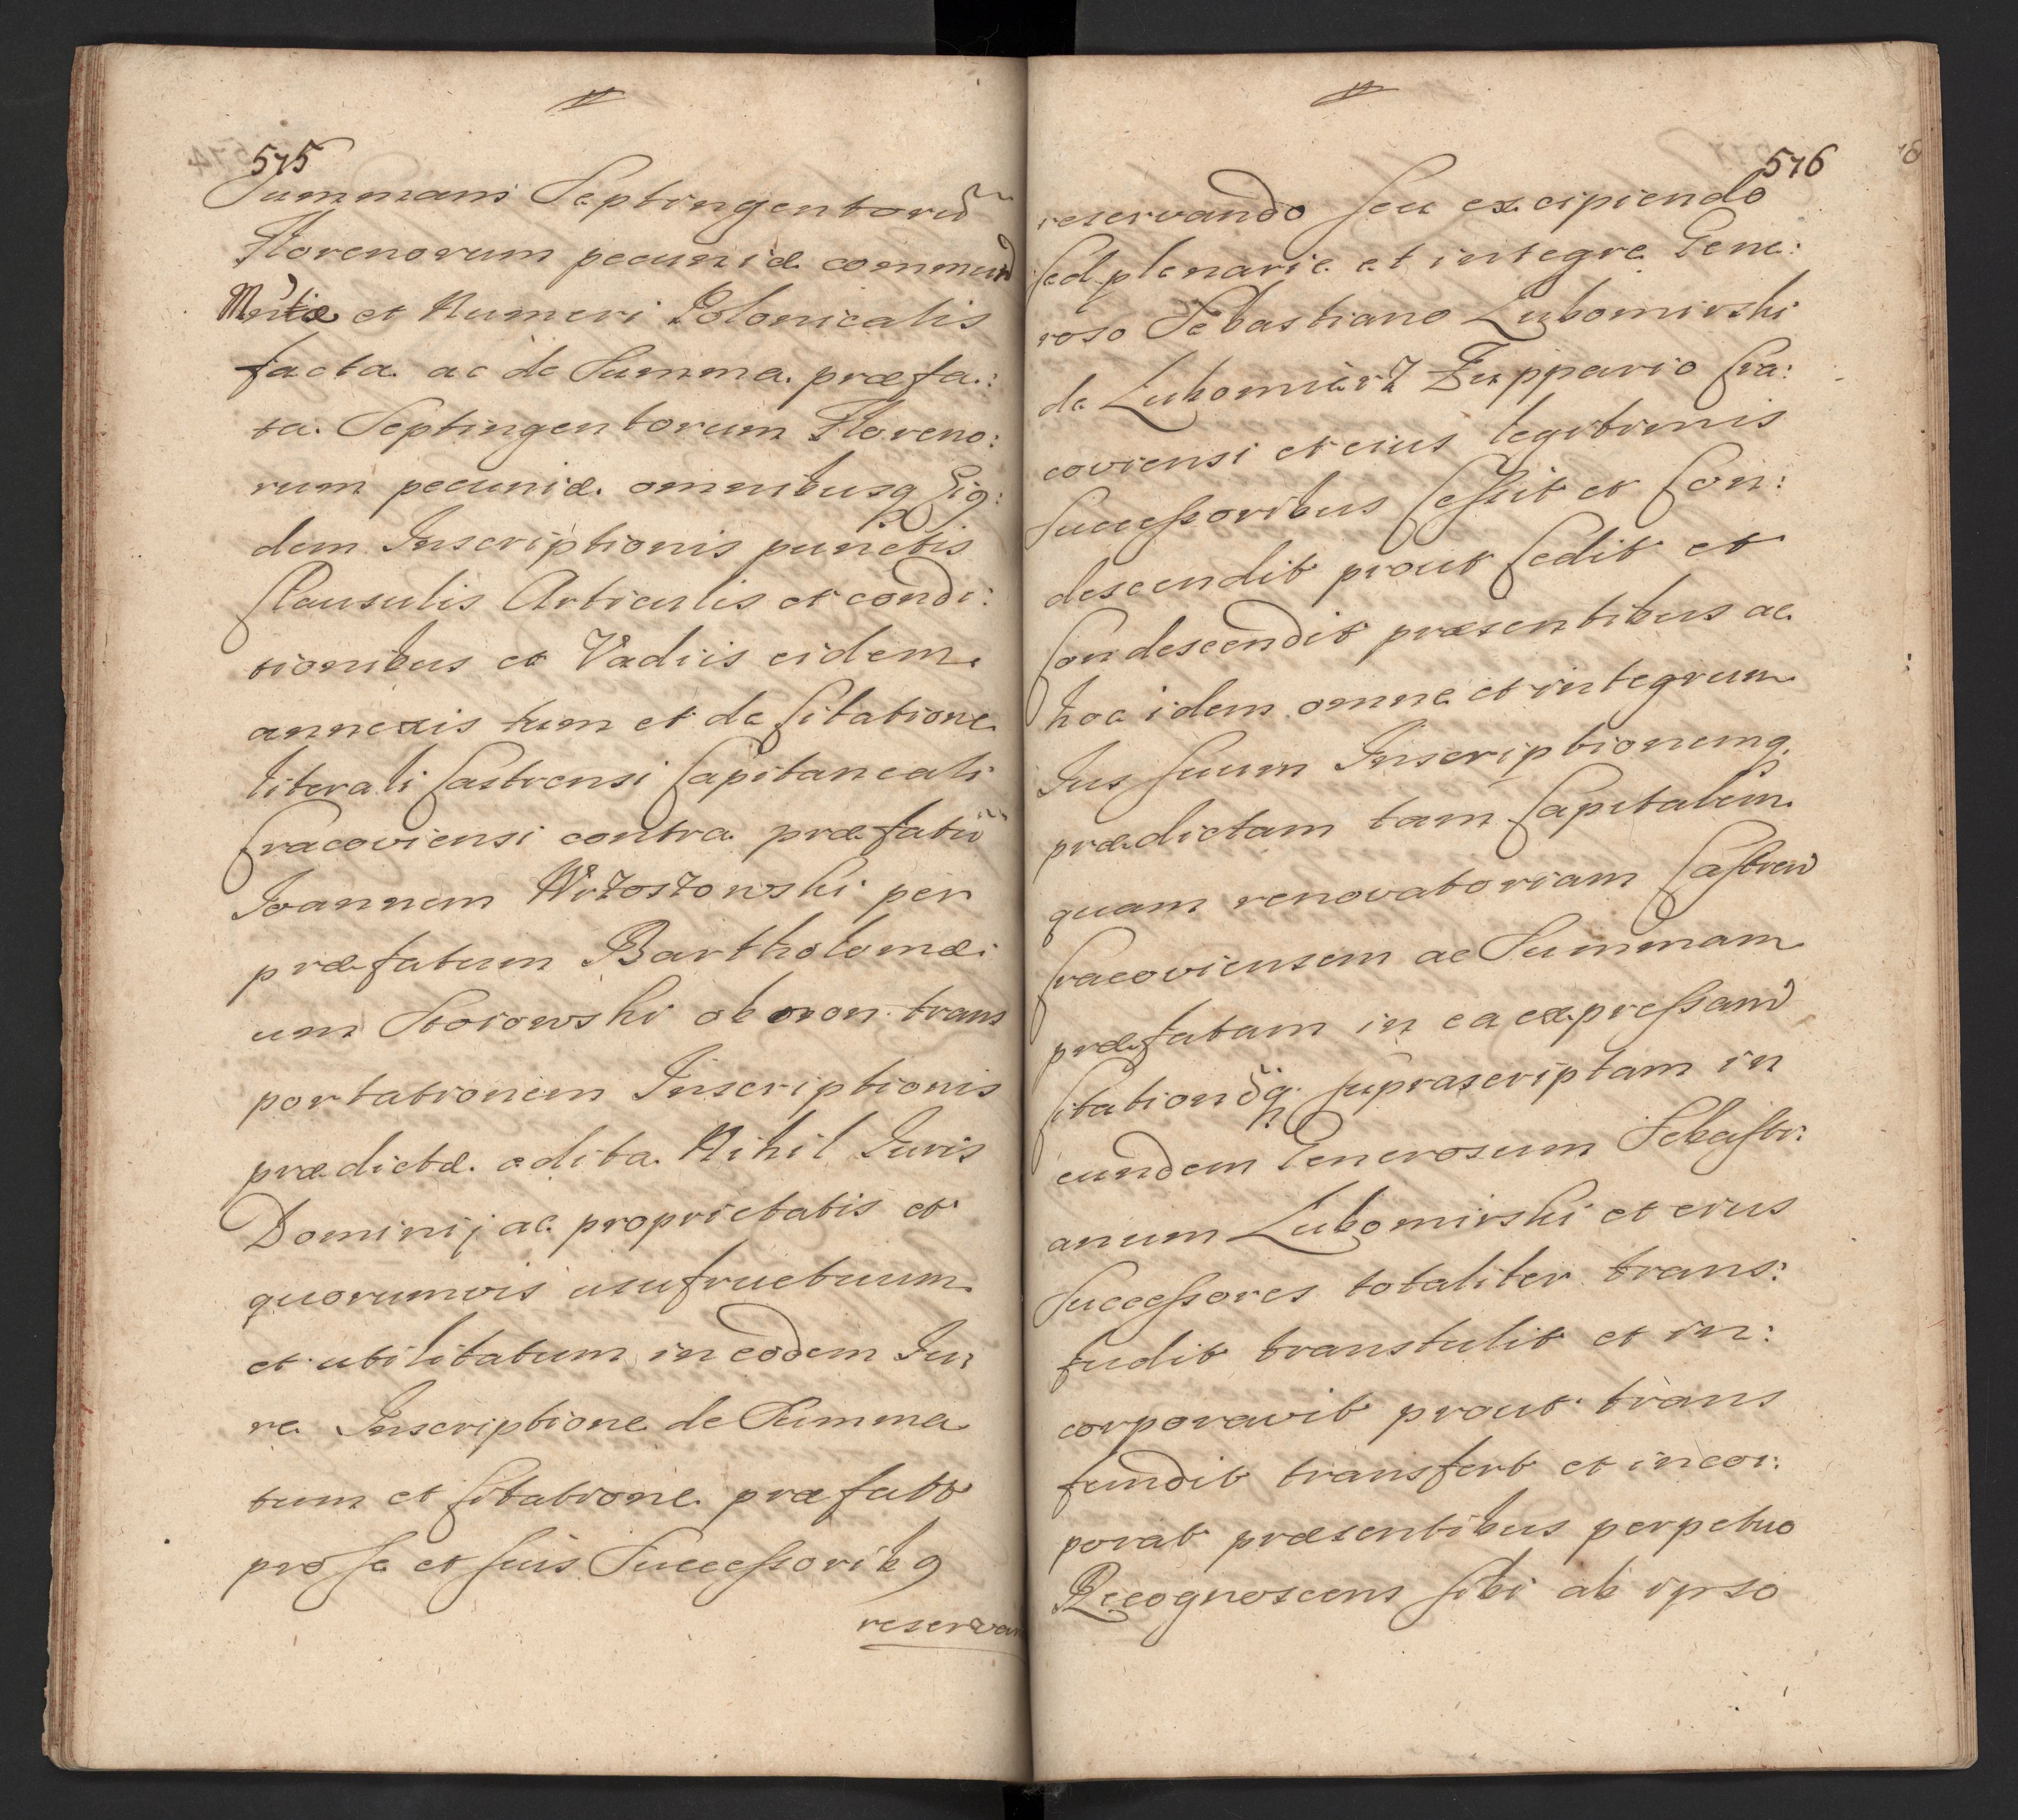 575
Summam Septingentorũ
Florenorum pecuniæ commun
Mntæ et Numeri Polonicalis
facta ac de Summa præfa:
ta Septingentorum Floreno:
rum pecuniæ omnibusq Eig:
dem Inscriptionis punctis
Clausulis Articulis et condi:
tionibus et Vadiis eidem
annexis tum et de Citatione
literali Castrensi Capitaneali
Cracoviensi contra præfatũ
Joannem Wrzoszowski per
præfatum Bartholomæ:
um Stoiowski ob non trans
portationem Inscriptionis
prædictæ edita Nihil Juris
Dominij ac proprietatis et
quorumvis usufructuum
et utilitatum in eodem Ju:
re Inscriptione de Summa
tum et Citatione præfatt
pro se et suis Successorib9
reservan
576
reservando seu excipiendo
sed plenarie et integre Gene:
roso Sebastiano Lubomirski
de Lubomierz Zuppario Cra:
coviensi et eius legitimis
Successoribus Cessit et Con:
descendit prout Cedit et
Condescendit præsentibus ac
hoc idem omne et integrum
Jus suum Inscriptionemq
prædictam tam Capitalem
quam renovatoriam Castren
Cracoviensem ac Summam
præfatam in ea expressam
Citationẽq suprascriptam in
eundem Generosum Sebasti:
anum Lubomirski et eius
Successores totaliter trans:
fudit transtulit et in:
corporavit prout trans
fundit transfert et incor:
porat præsentibus perpetuo
Recognoscens sibi ab ipso